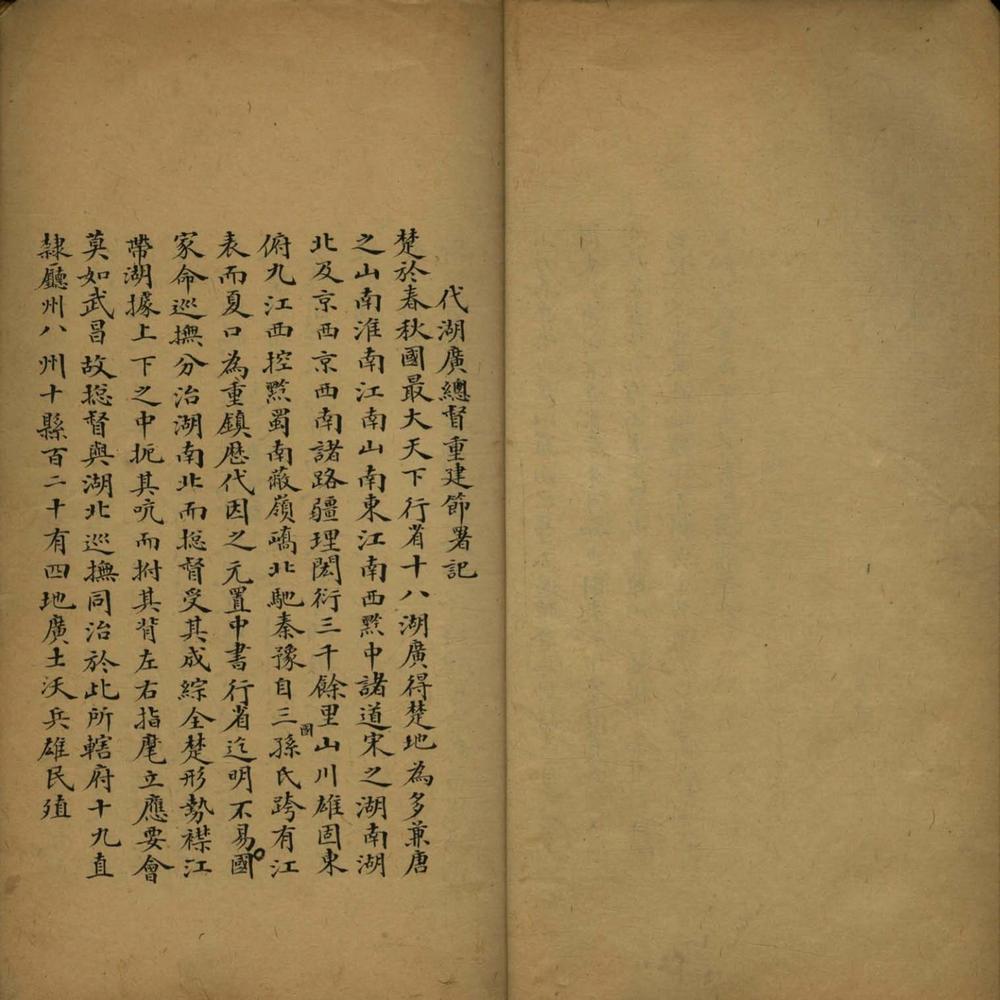 代湖廣總督重建節署記
楚於春秋國最大天下行省十八湖廣得楚地為多兼唐
之山南淮南江南山南東江南西黔中諸道宋之湖南湖
北及京西京西南諸路疆理閎衍三千餘里山川雄固東
俯九江西控黔蜀南蔽嶺嶠北馳秦豫自三國孫氏跨有江
表而夏口為重鎮歷代因之元置中書行省迄明不易國
家命巡撫分治湖南北而揔督受其成綜全楚形勢襟江
帶湖據上下之中扼其吭而拊其背左右指麾立應要會
莫如武昌故揔督與湖北巡撫同治於此所轄府十九直
隸廳州八州十縣百二十有四地廣土沃兵雄民殖